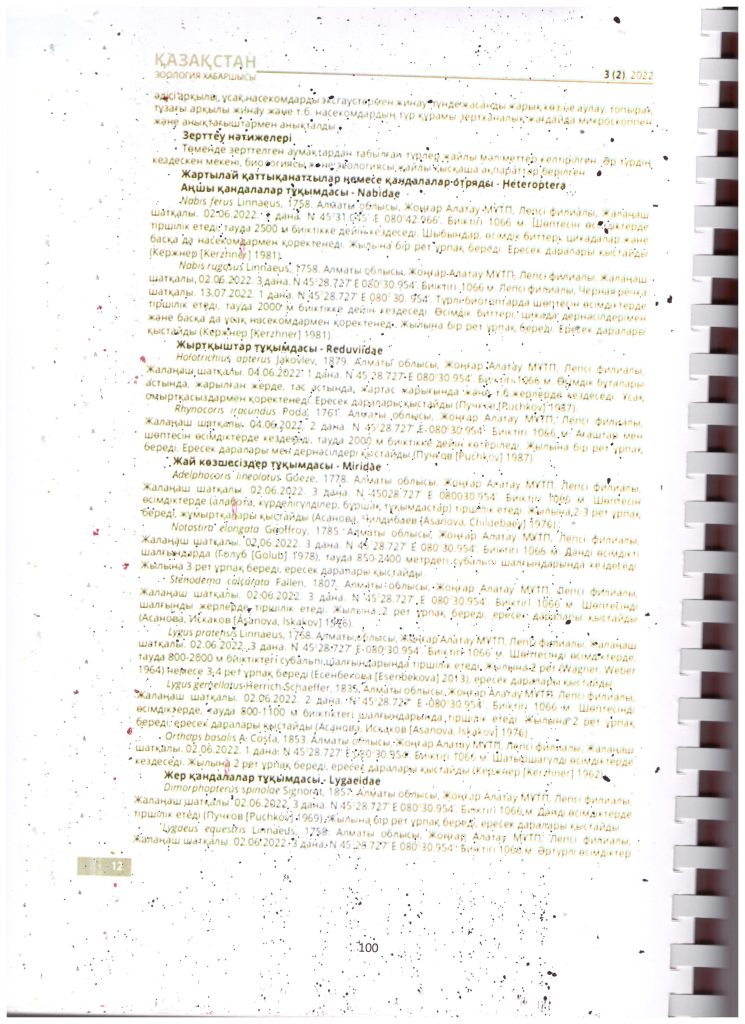 ҚАЗАҚСТАН
ЗООЛОГИЯ ХАБАРШЫСЫ
3 (2), 2022
әдісі арқылы, ұсақ насекомдарды эксгаустермен жинау, түнде жасанды жарық көзіне аулау, топырақ
тұзағы арқылы жинау және т.б. насекомдардың түр құрамы зертханалық жағдайда микроскоппен
және анықтағыштармен анықталды.
Зерттеу нәтижелері
Төменде зерттелген аумақтардан табылған түрлер жайлы мәліметтер келтірілген. Әр түрдің
кездескен мекені, биологиясы және экологиясы жайлы қысқаша ақпараттар берілген.
Жартылай қаттықанаттылар немесе қандалалар отряды - Heteroptera
Аңшы қандалалар тұқымдасы - Nabidae
Nabis ferus Linnaeus, 1758. Алматы облысы, Жоңғар Алатау МҰТП, Лепсі филиалы, Жалаңаш
шатқалы. 02.06.2022. дана. N 45°31.045' E 080°42.966'. Биіктігі 1066 м. Шөптесін өсімдіктерде
тіршілік етеді, тауда 2500 м биіктікке дейін кездеседі. Шыбындар, өсімдік биттері, цикадалар және
басқа да насекомдармен қоректенеді. Жылына бір рет ұрпақ береді. Ересек даралары қыстайды
(Кержнер [Kerzhner] 1981).
Nabis rugosus Linnaeus, 1758. Алматы облысы, Жоңғар Алатау МҰТП, Лепсі филиалы, Жалаңаш
шатқалы, 02.06.2022. 3 дана. N 45°28.727' E 080°30.954'. Биіктігі 1066 м. Лепсі филиалы, Черная речка
шатқалы. 13.07.2022. 1 дана. N 45°28.727' E 080°30.954'. Түрлі биотоптарда шөптесін өсімдіктерде
тіршілік етеді, тауда 2000 м биіктікке дейін кездеседі. Өсімдік биттері, цикада дернәсілдерімен
және басқа да ұсақ насекомдармен қоректенеді. Жылына бір рет ұрпақ береді. Ересек даралары
қыстайды (Кержнер [Kerzhner] 1981).
Жыртқыштар тұқымдасы - Reduviidae
Holotrichius apterus Jakovlev, 1879. Алматы облысы, Жоңғар Алатау МҰТП, Лепсі филиалы,
Жалаңаш шатқалы. 04.06.2022. 1 дана. N 45°28.727' E 080°30.954'. Биіктігі 1066 м. Өсімдік бұталары
астында, жарылған жерде, тас астында, жартас жарығында және т.б. жерлерде кездеседі. Ұсақ
омыртқасыздармен қоректенеді. Ересек даралары қыстайды (Пучков [Puchkov] 1987).
Rhynocoris iracundus Poda, 1761. Алматы облысы, Жоңғар Алатау МҰТП, Лепсі филиалы,
Жалаңаш шатқалы. 04.06.2022. 2 дана. N 45°28.727' E 080°30.954'. Биіктігі 1066 м. Ағаштар мен
шөптесін өсімдіктерде кездеседі, тауда 2000 м биіктікке дейін көтеріледі. Жылына бір рет ұрпақ
береді. Ересек даралары мен дернәсілдері қыстайды (Пучков [Puchkov] 1987).
Жай көзшесіздер тұқымдасы - Miridae
Adelphocoris lineolatus Goeze, 1778. Алматы облысы, Жоңғар Алатау МҰТП, Лепсі филиалы,
Жалаңаш шатқалы. 02.06.2022. 3 дана. N 45028.727' E 080030.954'. Биіктігі 1066 м. Шөптесін
өсімдіктерде (алабота, күрделігүлділер, бұршақ тұқымдастар) тіршілік етеді. Жылына 2-3 рет ұрпақ
береді, жұмыртқалары қыстайды (Асанова, Чилдибаев [Asanova, Childebaev] 1976).
Notostira elongata Geoffroy, 1785. Алматы облысы, Жоңғар Алатау МҰТП, Лепсі филиалы,
Жалаңаш шатқалы. 02.06.2022. 3 дана. N 45°28.727' E 080°30.954'. Биіктігі 1066 м. Дәнді өсімдікті
шалғындарда (Голуб [Golub] 1978), тауда 850-2400 метрдегі субальпі шалғындарында кездеседі.
Жылына 3 рет ұрпақ береді, ересек даралары қыстайды.
Stenodema calcarata Fallen, 1807. Алматы облысы, Жоңғар Алатау МҰТП, Лепсі филиалы,
Жалаңаш шатқалы. 02.06.2022. 3 дана. N 45°28.727' E 080°30.954'. Биіктігі 1066 м. Шөптесінді
шалғынды жерлерде тіршілік етеді. Жылына 2 рет ұрпақ береді, ересек даралары қыстайды
(Асанова, Искаков [Asanova, Iskakov] 1976).
Lygus pratensis Linnaeus, 1758. Алматы облысы, Жоңғар Алатау МҰТП, Лепсі филиалы, Жалаңаш
шатқалы. 02.06.2022. 3 дана. N 45°28.727' E 080°30.954'. Биіктігі 1066 м. Шөптесінді өсімдіктерде,
тауда 800-2800 м биіктіктегі субальпі шалғындарында тіршілік етеді. Жылына 2 рет (Wagner, Weber
1964) немесе 3,4 рет ұрпақ береді (Есенбекова [Esenbekova] 2013), ересек даралары қыстайды.
Lygus gemellatus Herrich-Schaeffer, 1835. Алматы облысы, Жоңғар Алатау МҰТП, Лепсі филиалы,
Жалаңаш шатқалы. 02.06.2022. 2 дана. N 45°28.727' E 080°30.954'. Биіктігі 1066 м. Шөптесінді
өсімдіктерде, тауда 800-1100 м биіктіктегі шалғындарында тіршілік етеді. Жылына 2 рет ұрпақ
береді, ересек даралары қыстайды (Асанова, Искаков [Asanova, Iskakov] 1976).
Orthops basalis A. Costa, 1853. Алматы облысы, Жоңғар Алатау МҰТП, Лепсі филиалы, Жалаңаш
шатқалы. 02.06.2022. 1 дана. N 45°28.727' E 080°30.954'. Биіктігі 1066 м. Шатыршагүлді өсімдіктерде
кездеседі. Жылына 2 рет ұрпақ береді, ересек даралары қыстайды (Кержнер [Kerzhner] 1962).
Жер қандалалар тұқымдасы - Lygaeidae
Dimorphopterus spinolae Signoret, 1857. Алматы облысы, Жоңғар Алатау МҰТП, Лепсі филиалы,
Жалаңаш шатқалы. 02.06.2022. 3 дана. N 45°28.727' E 080°30.954'. Биіктігі 1066 м. Дәнді өсімдіктерде
тіршілік етеді (Пучков [Puchkov] 1969). Жылына бір рет ұрпақ береді, ересек даралары қыстайды.
Lygaeus equestris Linnaeus, 1758. Алматы облысы, Жоңғар Алатау МҰТП, Лепсі филиалы,
Жалаңаш шатқалы. 02.06.2022. 3 дана. N 45°28.727' E 080°30.954'. Биіктігі 1066 м. Әртүрлі өсімдіктер
12
100